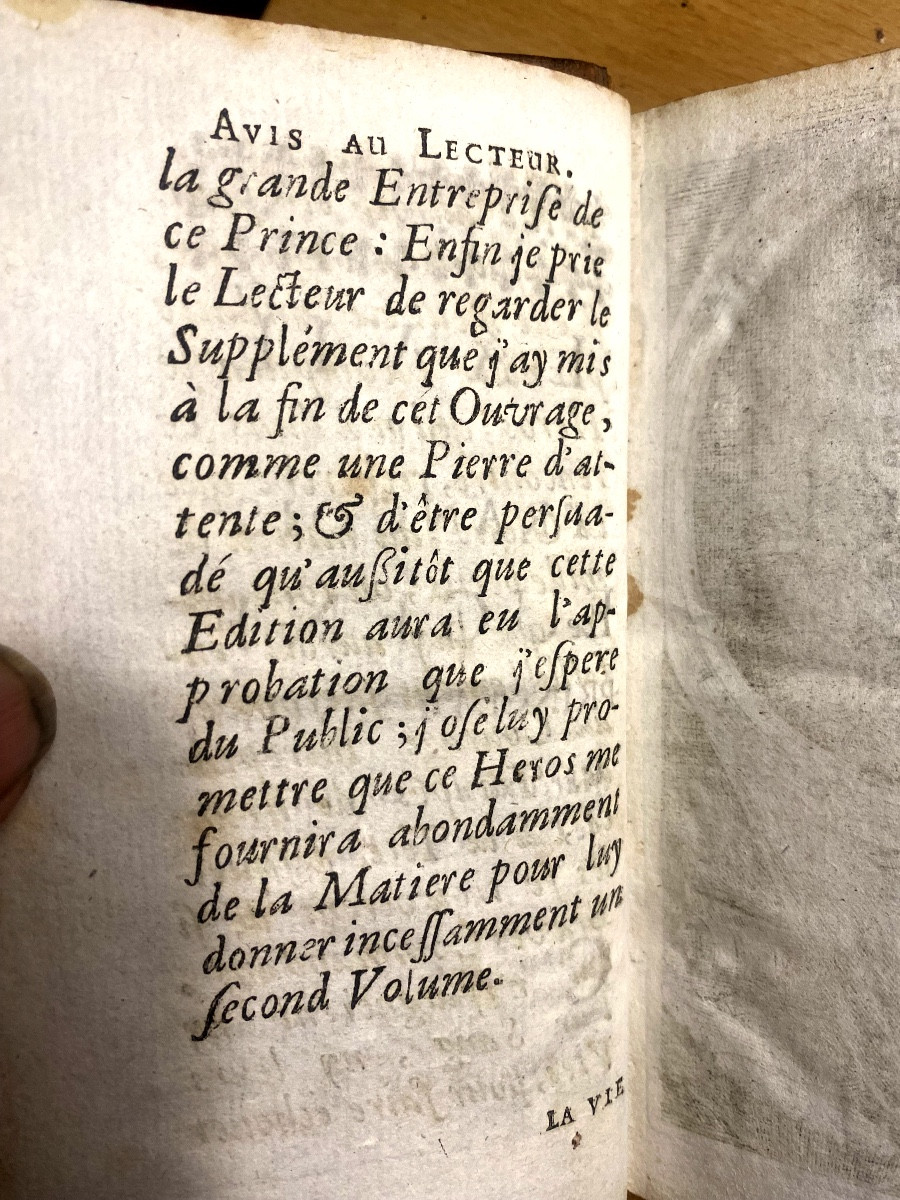 AVIS AU LECTEUR.
la grande Entrepriſe de
ce Prince : Enfin je prie
le Lecteur de regarder le
Supplément que j'ay mis
à la fin de cét Ouvrage,
comme une Pierre d'at-
tente ; & d'être perſua-
dé qu'außitôt que cette
Edition aura eu l'ap-
probation que j'eſpere
du Public ; j'oſe luy pro-
mettre que ce Heros me
fournira abondamment
de la Matiere pour luy
donner inceſſamment un
ſecond Volume.
LA VIE